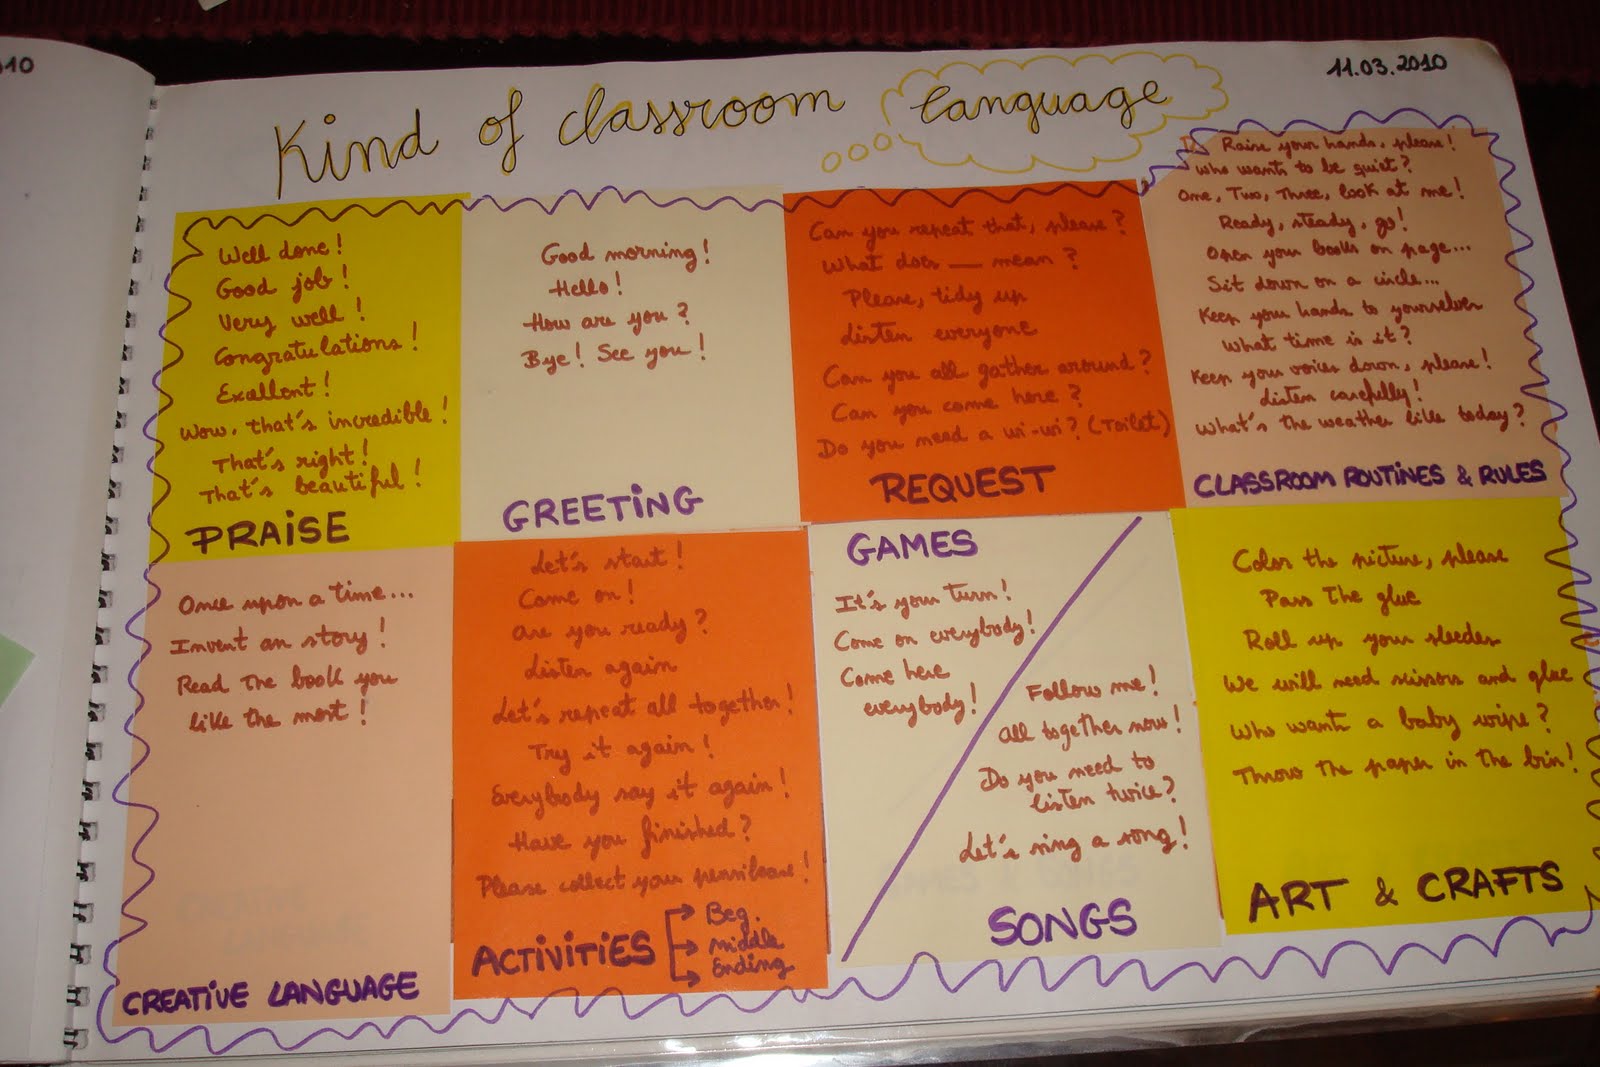 010
11.03.2010
Kind of classroom language
Well done!
Good job!
Very well!
Congratulations!
Excellent!
Wow, that's incredible!
That's right!
That's beautiful!
PRAISE
Good morning!
Hello!
How are you?
Bye! See you!
GREETING
Can you repeat that, please?
What does ___ mean?
Please, tidy up
Listen everyone
Can you all gather around?
Can you come here?
Do you need a wi-wi? (Toilet)
REQUEST
Raise your hands, please!
Who wants to be quiet?
One, Two, Three, look at me!
Ready, steady, go!
Open your books on page...
Sit down on a circle...
Keep your hands to yourselves
What time is it?
Keep your voices down, please!
Listen carefully!
What's the weather like today?
CLASSROOM ROUTINES & RULES
Once upon a time...
Invent an story!
Read the book you
like the most!
CREATIVE LANGUAGE
Let's start!
Come on!
Are you ready?
Listen again
Let's repeat all together!
Try it again!
Everybody say it again!
Have you finished?
Please collect your pencilcase!
ACTIVITIES
Beg.
Middle
Ending
GAMES
It's your turn!
Come on everybody!
Come here
everybody!
Follow me!
All together now!
Do you need to
listen twice?
Let's sing a song!
SONGS
Color the picture, please
Pass the glue
Roll up your sleedes
We will need scissors and glue
Who want a baby wipe?
Throw the paper in the bin!
ART & CRAFTS